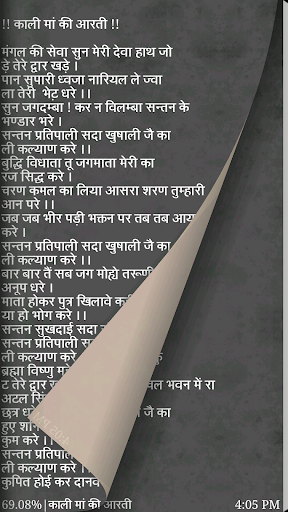 !! काली मां की आरती !!
मंगल की सेवा सुन मेरी देवा हाथ जो
ड़े तेरे द्वार खड़े ।
पान सुपारी ध्वजा नारियल ले ज्वा
ला तेरी भेट धरे ।।
सुन जगदम्बा ! कर न विलम्बा सन्तन के
भण्डार भरे ।
सन्तन प्रतिपाली सदा खुषाली जै का
ली कल्याण करे ।।
बुद्धि विधाता तू जगमाता मेरी का
रज सिद्ध करे ।
चरण कमल का लिया आसरा शरण तुम्हारी
आन परे ।।
जब जब भीर पड़ी भक्तन पर तब तब आय
करे ।
सन्तन प्रतिपाली सदा खुषाली जै का
ली कल्याण करे ।।
बार बार तैं सब जग मोह्ये
अनूप धरे ।
माता होकर पुत्र खिलावे
या हो भोग करे ।।
सन्तन सुखदाई सदा
ली कल्याण करे ।।
ब्रह्मा विष्णु
ट तेरे द्वार भवन में रा
अटल
छत्र जै का
हुए
कुम करे ।।
सन्तन प्रतिपाली
ली कल्याण करे ।।
कुपित होई कर दानव
69.08%|काली मां की आरती 4:05 PM